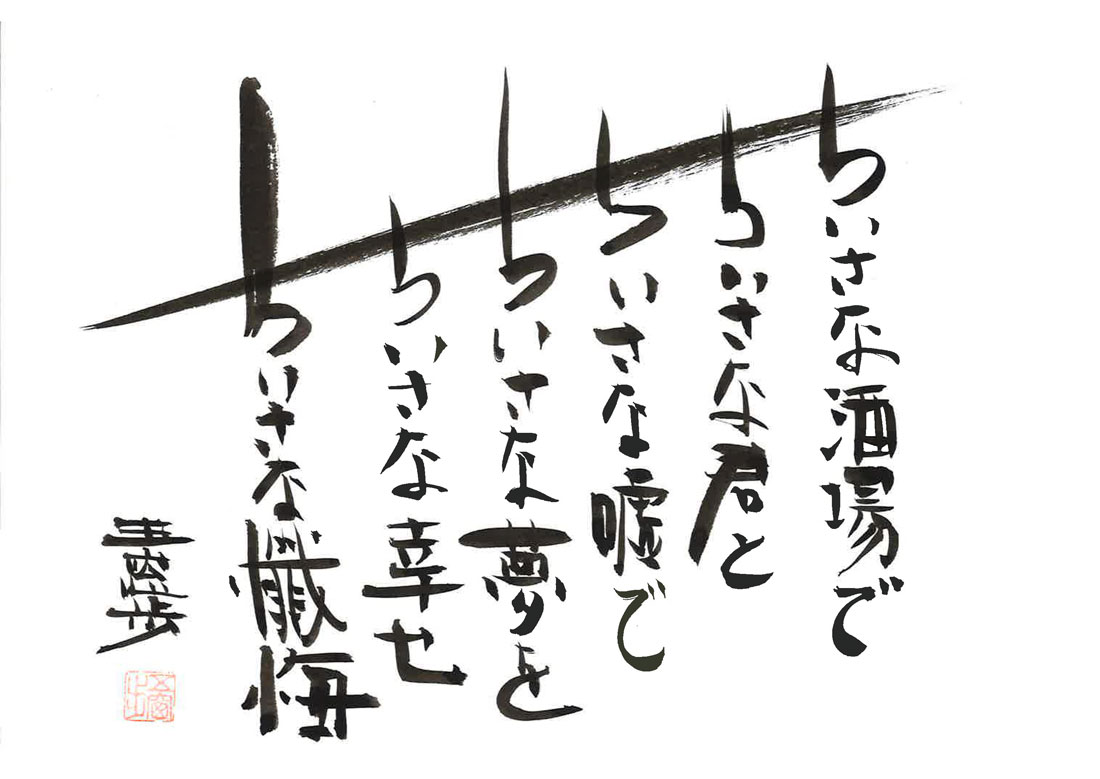 ちいさな酒場で
ちいさな君と
ちいさな嘘で
ちいさな夢を
ちいさな幸せ
ちいさな懺悔